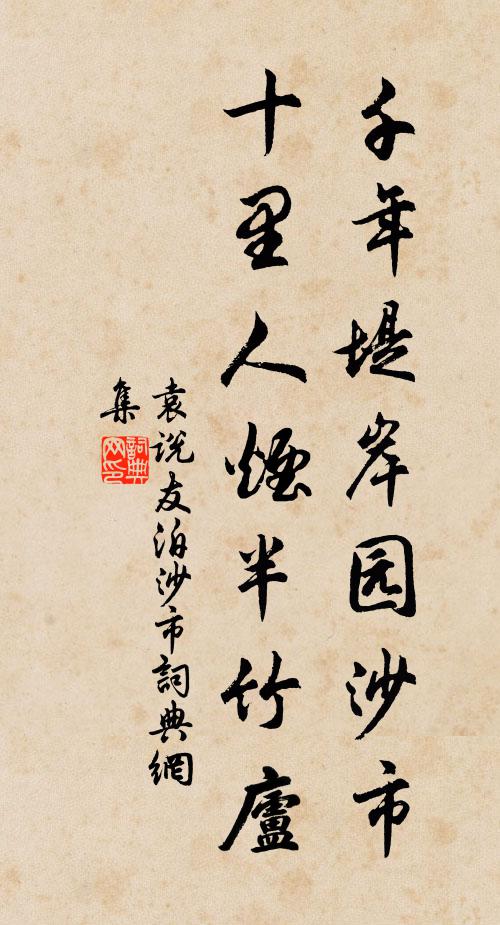 千年堤岸园沙市
十里人烟半竹廬
袁说友泊沙市詞典網
集
詞典網印